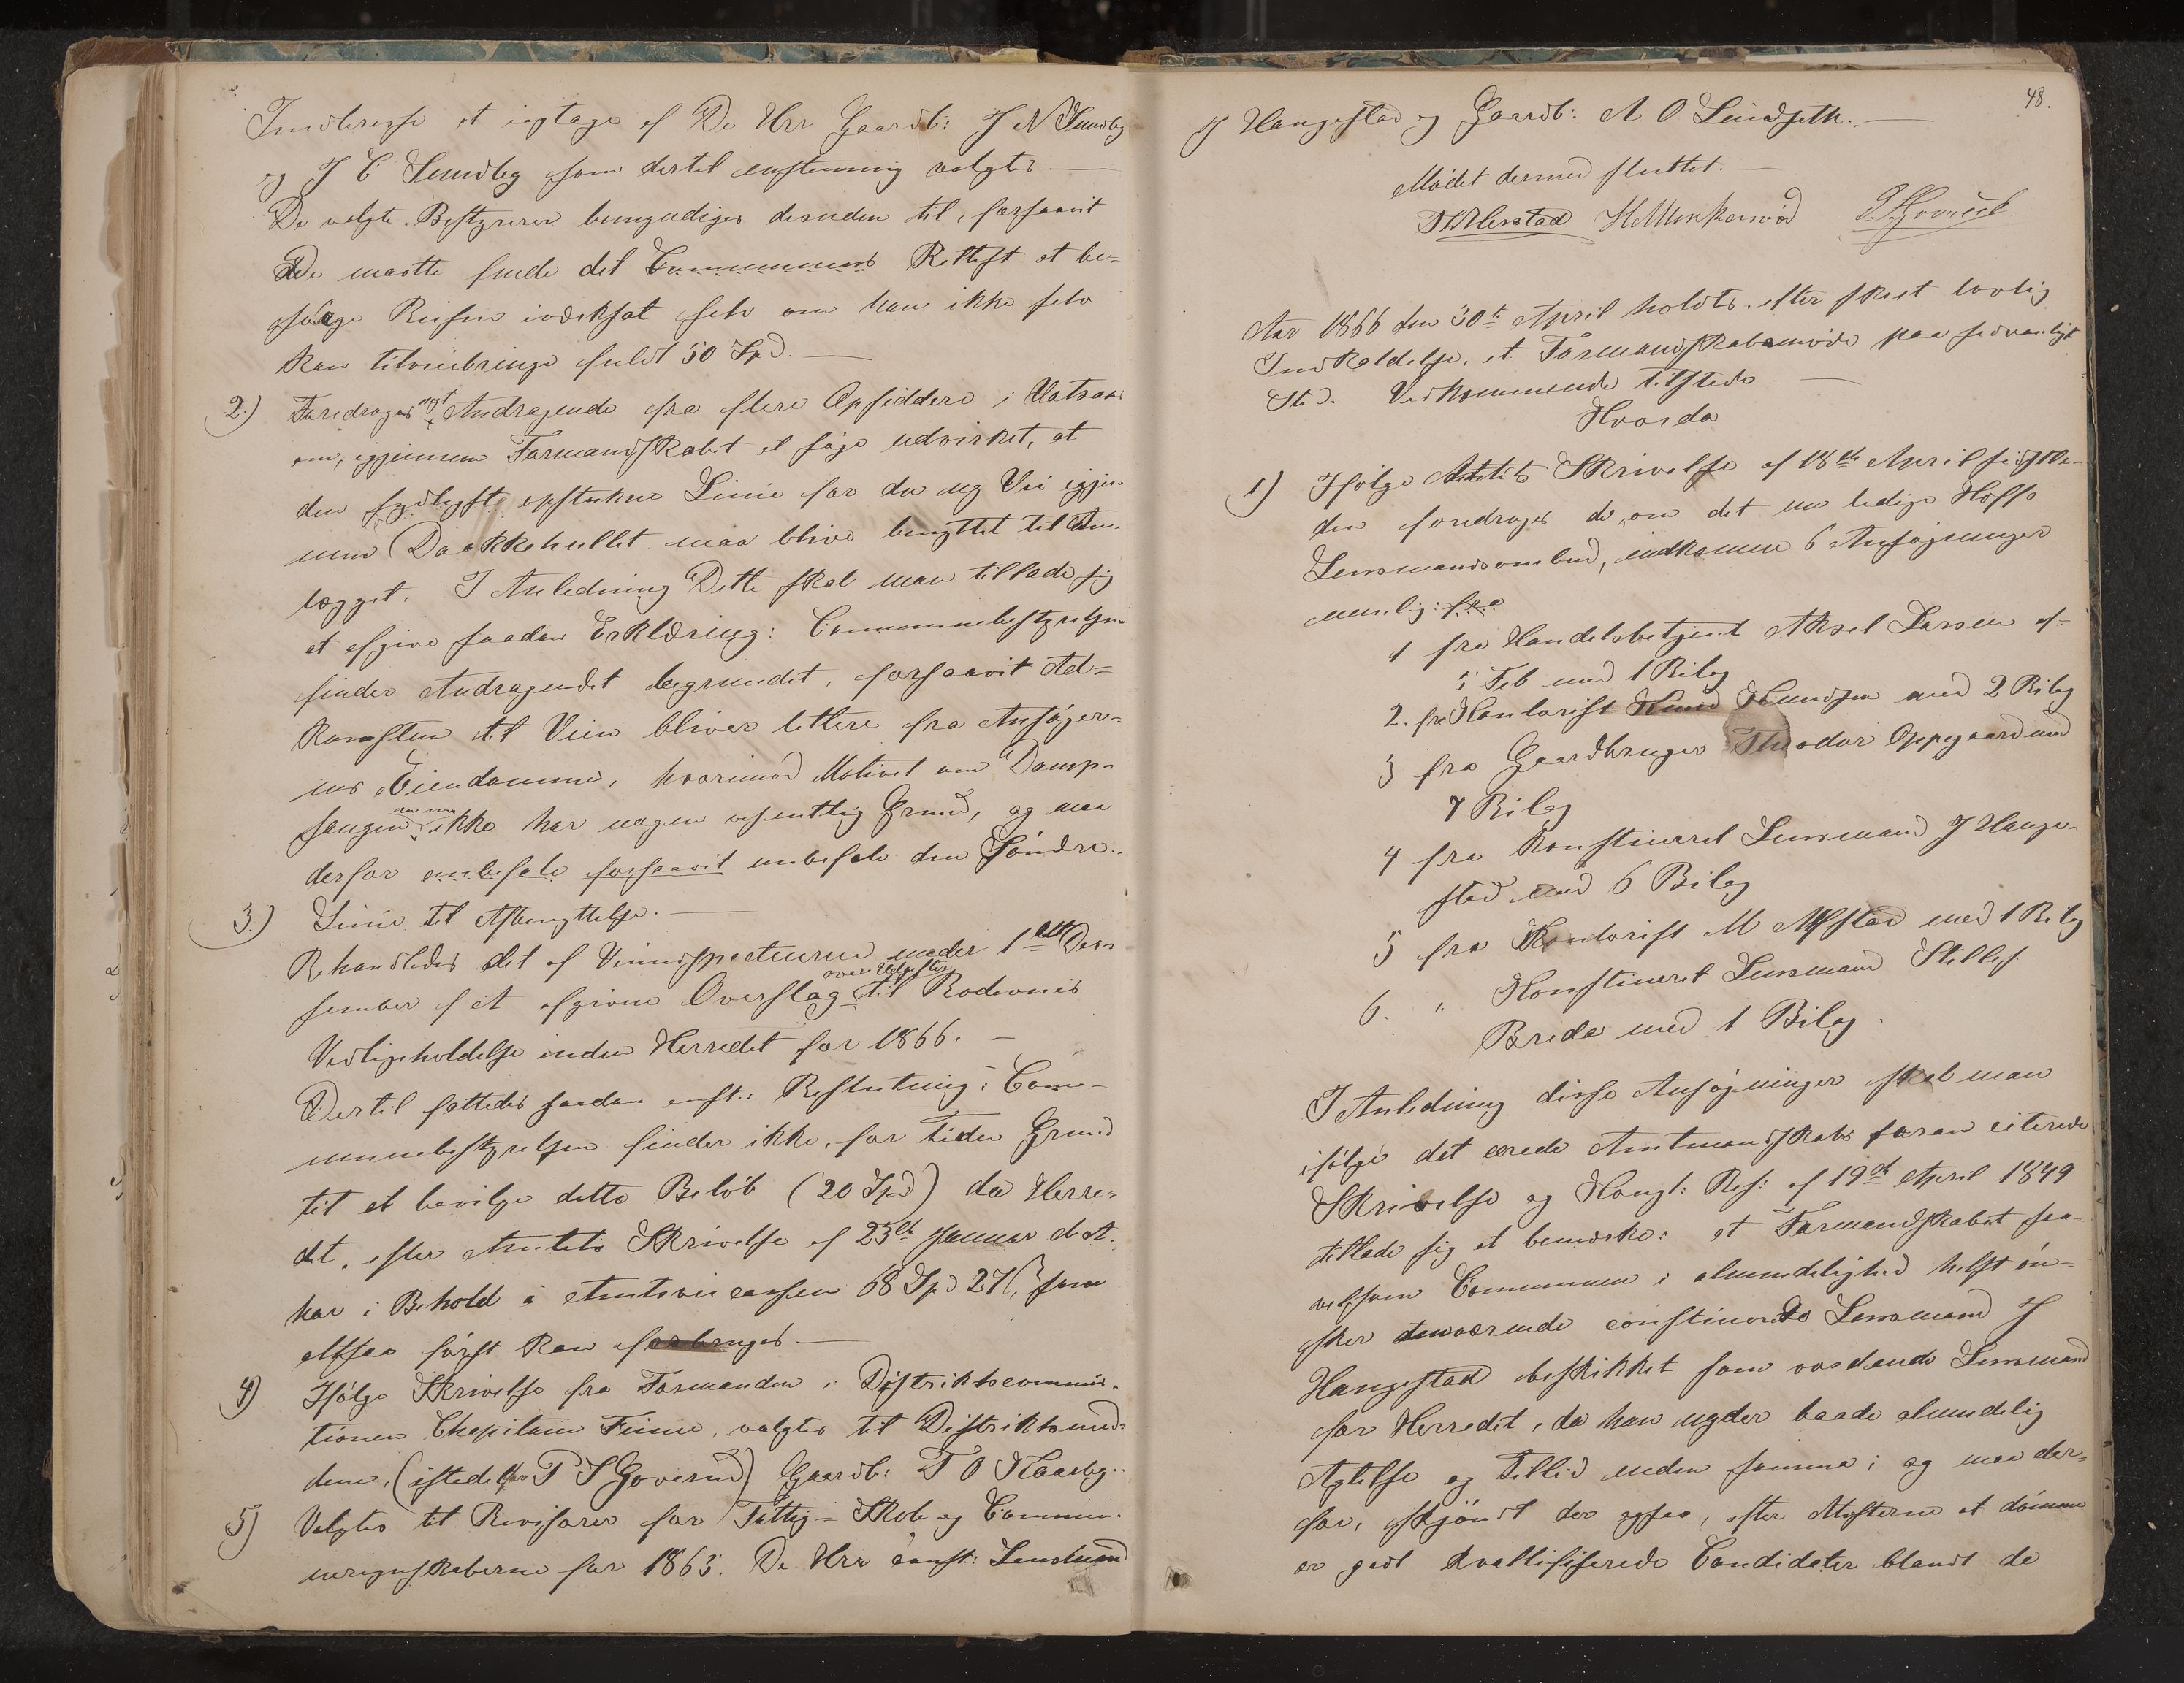 Interesse at iagtage af De Hrr Gaardb: J N Sundby
og J C Sundby som dertil enstemmig valgtes —
De valgte Bestyrere bemyndiges desuden til, forsaavit
De maatte finde det Communens Rettest at be-
sørge Reisen iværksat selv om han ikke selv
kan tilveiebringe fuldt 50 Spd. —
2.) Foredroges Andragende fra flere Opsiddere i
om, igjennem Formandskabet at søge udvirket, at
den sydligste opstukne Linie for den ny Vei igjen-
nem Dakkehullet maa blive benyttet til An-
lægget. I Anledning Dette skal man tillade sig
at afgive saadan Erklæring: Communebestyrelsen
finder Andragendet begrundet, forsaavit Ad-
komsten til Veien bliver lettere fra Ansøger-
nes Eiendomme, hvorimod Motivet om Damp-
saugen ikke har nogen vesentlig Grund, og maa
derfor anbefale forsaavit anbefale den Søndre
3.) Linie til Afbenyttelse. —
Behandledes det af Veiinspecteuren under 1ste De-
sember f A afgivne Overslag over Udgifter til Rodeveies
Vedligeholdelse inden Herredet for 1866. —
Dertil fattedes saadan enst: Beslutning: Com-
munebestyrelsen finder ikke, for Tiden Grund
til at bevilge dette Beløb (20 Spd) da Herre-
det, efter Amtets Skrivelse af 23de Januar d. A.
har i Behold i Amtsveicassen 68 Spd 27 ß, som
altsaa først kan forbruges —
4) Ifølge Skrivelse fra Formanden i Distriktscommis-
tionen Chapitain Finne, valgtes til Distriktsmed-
lem, (istedetfor P S Goverud) Gaardb: T O Kaarby.
5) Valgtes til Revisorer for Fattig- Skole og Commu-
neregnskaberne for 1865. De Hrr const: Lensmand
48.
J Hangestad og Gaardb: A O Lindseth. —
Mødet dermed sluttet. —
Aar 1866 den 30te April holdtes, efter skeet lovlig
Indkaldelse, et Formandskabsmøde paa sedvanligt
Sted. Vedkommende tilstede. —
Hvorda
1) Ifølge Amtets Skrivelse af 18de April sidstle-
den foredroges de, om det nu ledige Hoffs
Lensmandsombud, indkomne 6 Ansøgninger
nemlig: fra
1 fra Handelsbetjent Aksel Larsen af
5 Feb med 1 Bilag
2. fra Kontorist Knud Knudsen med 2 Bilag
3 fra Gaardbruger Theodor Oppegaard med
7 Bilag
4 fra Konstitueret Lensmand J Hange-
stad med 6 Bilag
5 fra Kontorist M Alfstad med 1 Bilag
6. " Konstitueret Lensmand
Brede med 1 Bilag.
I Anledning disse Ansøgninger skal man
ifølge det ærede Amtmandskabs foran citerede
Skrivelse og Kongl: Res: af 19de April 1849
tillade sig at bemærke: at Formandskabet saa-
velsom Communen i almindelighed helst øn-
sker denværende constituerede Lensmand J
Hangestad beskikket som vordende Lensmand
for Herredet, da han nyder baade almindelig
Agtelse og Tillid inden samme; og maa der-
for, skjøndt der ogsaa, efter Attesterne at dømme
er godt kvallifiserede Candidater blandt de